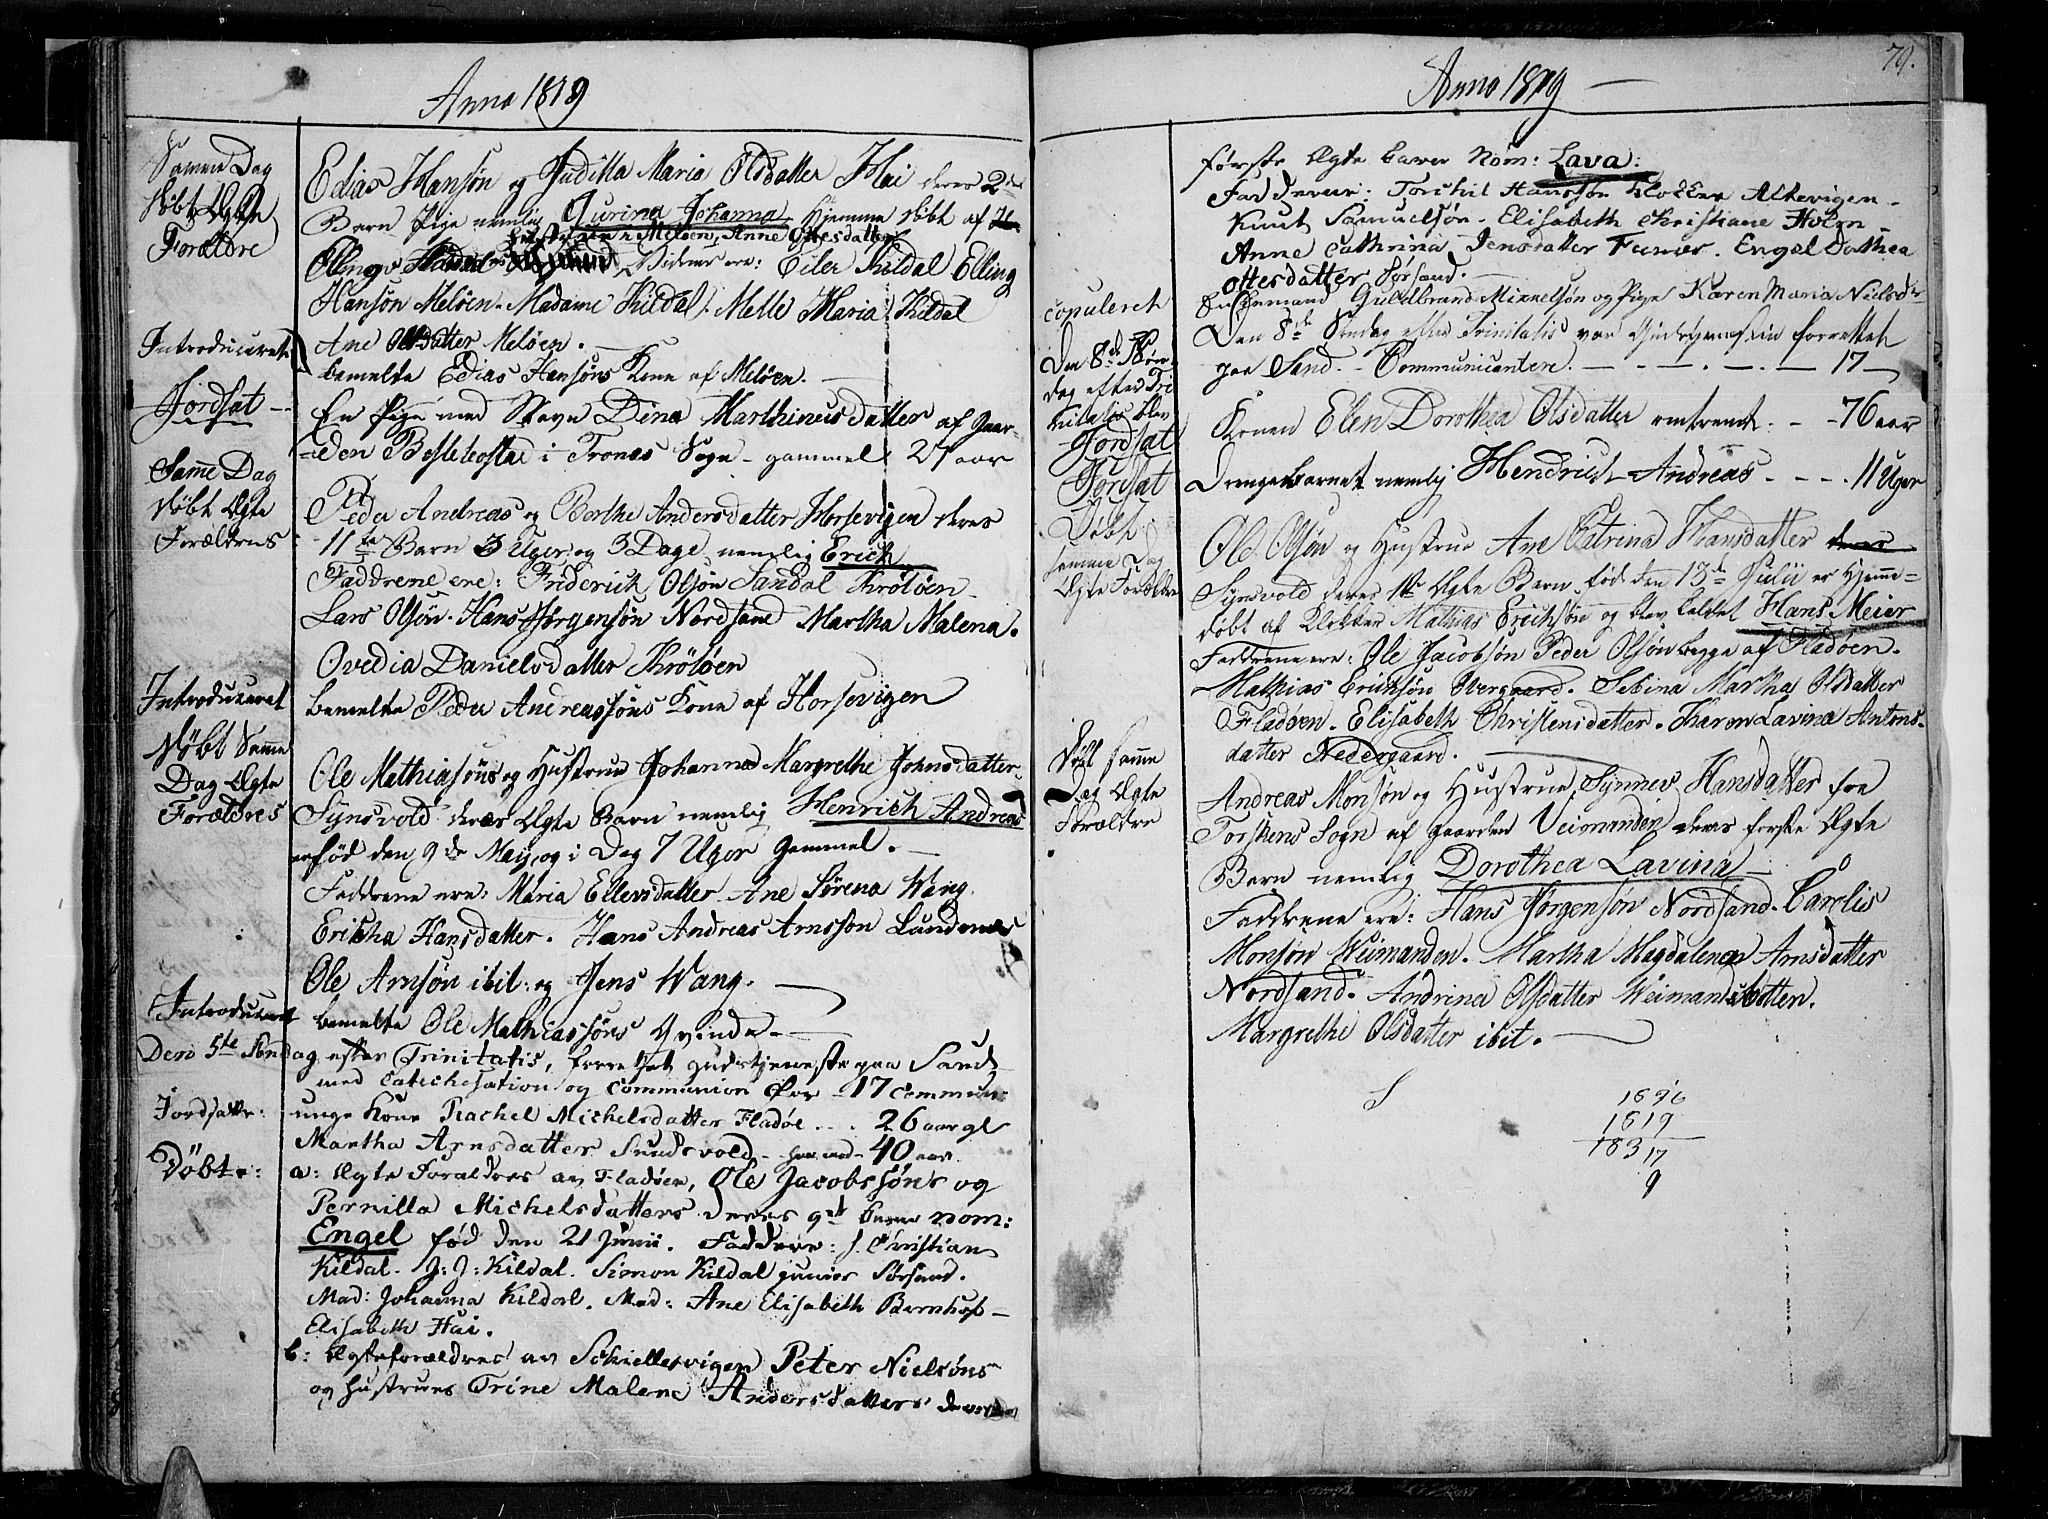 Anno 1819
Samme Dag
døbt Ægte
Forældre
Edias Hansøn og Juditta Maria Olsdatter Hai deres 2de
Barn Pige nemlig Gurina Johanna Hjemme døbt af
Meløen, Anne Ottesdatter
Vidner ere: Eiler Kildal Elling
Hansøn Meløen. Madame Kildal. Melle Maria Kildal
Ane Olsdatter Meløen.
Introduceret
bemelte Edias Hansøns Kone af Meløen.
Jordsat
En Pige med Navn Dina Marthinusdatter af Gaar-
den i Tronæs Sogn - gammel 27 aar
Samme Dag
døbt Ægte
Forældres
Peder Andreas og Berthe Andersdatter Horsevigen deres
11te Barn 3 Uger og 3 Dage nemlig Erich
Faddrene ere: Friderich Olsøn Sandal Krøtøen
Lars Olsøn. Hans Jørgensøn Nordsand Martha Malena.
Ovedia Danielsdatter Krøtøen
Introduceret
bemelte Peder Andreassøns Kone af Horsevigen
døbt Samme
Dag Ægte
Forældres
Ole Mathiasøns og Hustrue Johanna Margrethe Johnsdatter
Synsvold deres Ægte Barn nemlig Henrich Andreas
er fød den 9de May, og i Dag 7 Uger Gammel.
Faddrene ere: Maria Ellersdatter Ane Sørena Wang.
Ericha Hansdatter. Hans Andreas Arnssøn Lundenes
Ole Arnsøn ibit: og Jens Wang.
Introduceret
bemelte Ole Mathiassøns Qvinde
Den 5te Søndag efter Trinitatis, forrettet Gudstjeneste paa Sand
med Catechisation og Communion for 17 Commun:
Jordsatte:
unge Kone Rachel Michelsdatter Fladøe . . . 26 aar gl
Martha Arnsdatter Sundsvold 40 aar.
Døbte:
a: Ægte Foraldres av Fladøen, Ole Jacobssøns og
Pernilla Michelsdatters deres 9de barn nom:
Engel fød den 21 Junii. Faddere: J. Christian
Kildal. J: J: Kildal. Simon Kildal junior Sørsand.
Mad: Johanna Kildal. Mad: Ane Elisabeth Bernhof
Elisabeth Hai.
b: Ægteforældres av Schiellesvigen Peter Nielsøns
og Hustrues Trine Malene Anders datters deres
79.
Anno 1819
første Ægte barn Nom: Lava:
Faddere: Torchil Hansøn Klokker Altevigen
Knut Samuelsøn. Elisabeth Christiane Holm
Anne Cathrina Jensdatter Funæs. Engel Dathea
Ottesdatter Sørsand.
copuleret
Enkemand Guldbrand Mikkelsøn og Pige Karen Maria Nielsdtr
Den 8de Søn-
dag efter Tri
nitatis blev
Den 8de Søndag efter Trinitatis var Gudstjenesten forrettet
paa Sand. - Communicantere. - 17
Jordsat
Konen Elen Dorothea Olsdatter omtrent. - 76 aar
Jordsat
Drengebarnet nemlig Hendrich Andreas - - - 11 Uger
Døbt
samme Dag
Ægte Forældre
Ole Olsøn og Hustrue Ane Catrina Hansdatter deres
Synsvold deres 1te Ægte Barn fød den 13de Julii er Hjemme-
døbt af Klokker Mathias Erichsøn og blev kaldet Hans Meier
Faddrene ere: Ole Jacobsøn Peder Olsøn begge af Fladøen.
Mathias Erichsøn Overgaard. Sebina Martha Olsdatter
Fladøen. Elisabeth Christensdatter. Karen Lavina Antons-
datter Nedergaard.
Døbt samme
Dag Ægte
Forældre
Andreas Monsøn og Hustrue Synnes Hansdatter fra
Torskens Sogn af Gaarden Veimanden deres første Ægte
Barn nemlig Dorothea Lavina
Faddrene ere: Hans Jørgensøn Nordsand. Carelis
Monsøn Weimanden. Martha Magdalena Arnsdatter
Nordsand. Andrina Olsdatter Weimandsbotten.
Margrethe Olsdatter ibit.
1696
1619
183 17
9